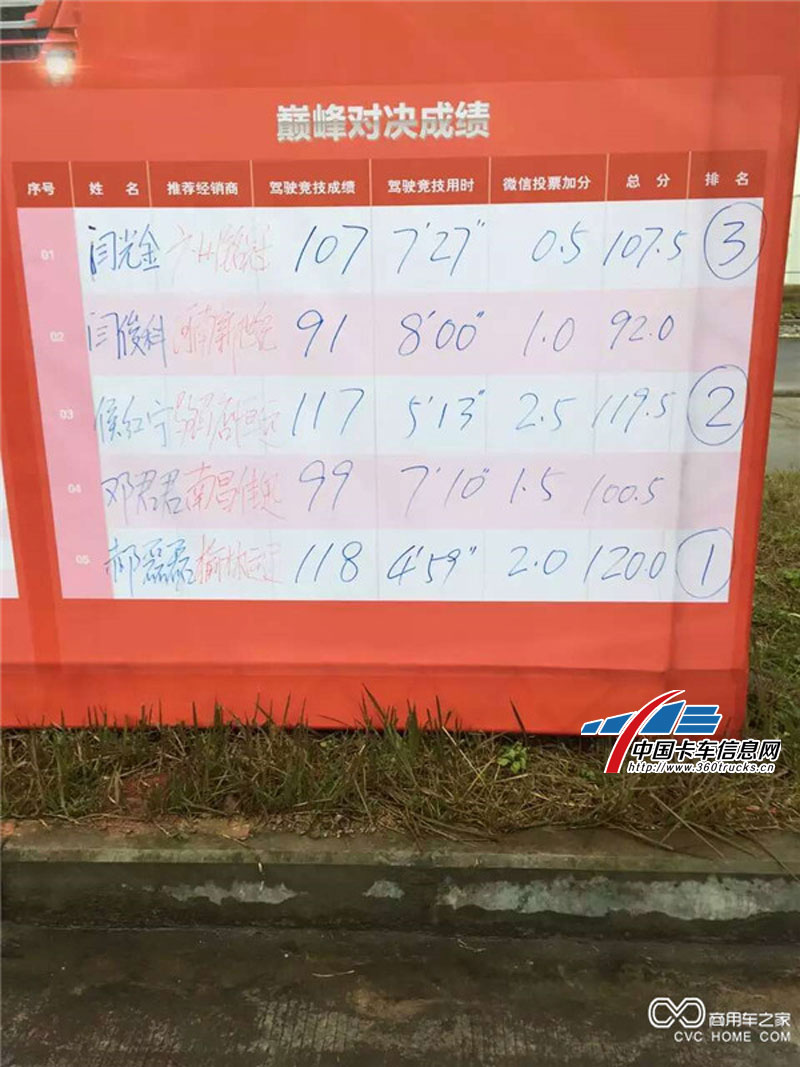 巅峰对决成绩
序号 姓 名 推荐经销商 驾驶竞技成绩 驾驶竞技用时 微信投票加分 总 分 排 名
01 闫光金 107 7'27" 0.5 107.5 ③
02 闫俊科 河南新世纪 91 8'00" 1.0 92.0
03 侯红宁 117 5'13" 2.5 119.5 ②
04 邓君君 南昌佳 99 7'10" 1.5 100.5
05 郝磊磊 榆林 118 4'59" 2.0 120.0 ①
中国卡车信息网
http://www.360trucks.cn
商用车之家
CVC HOME.COM